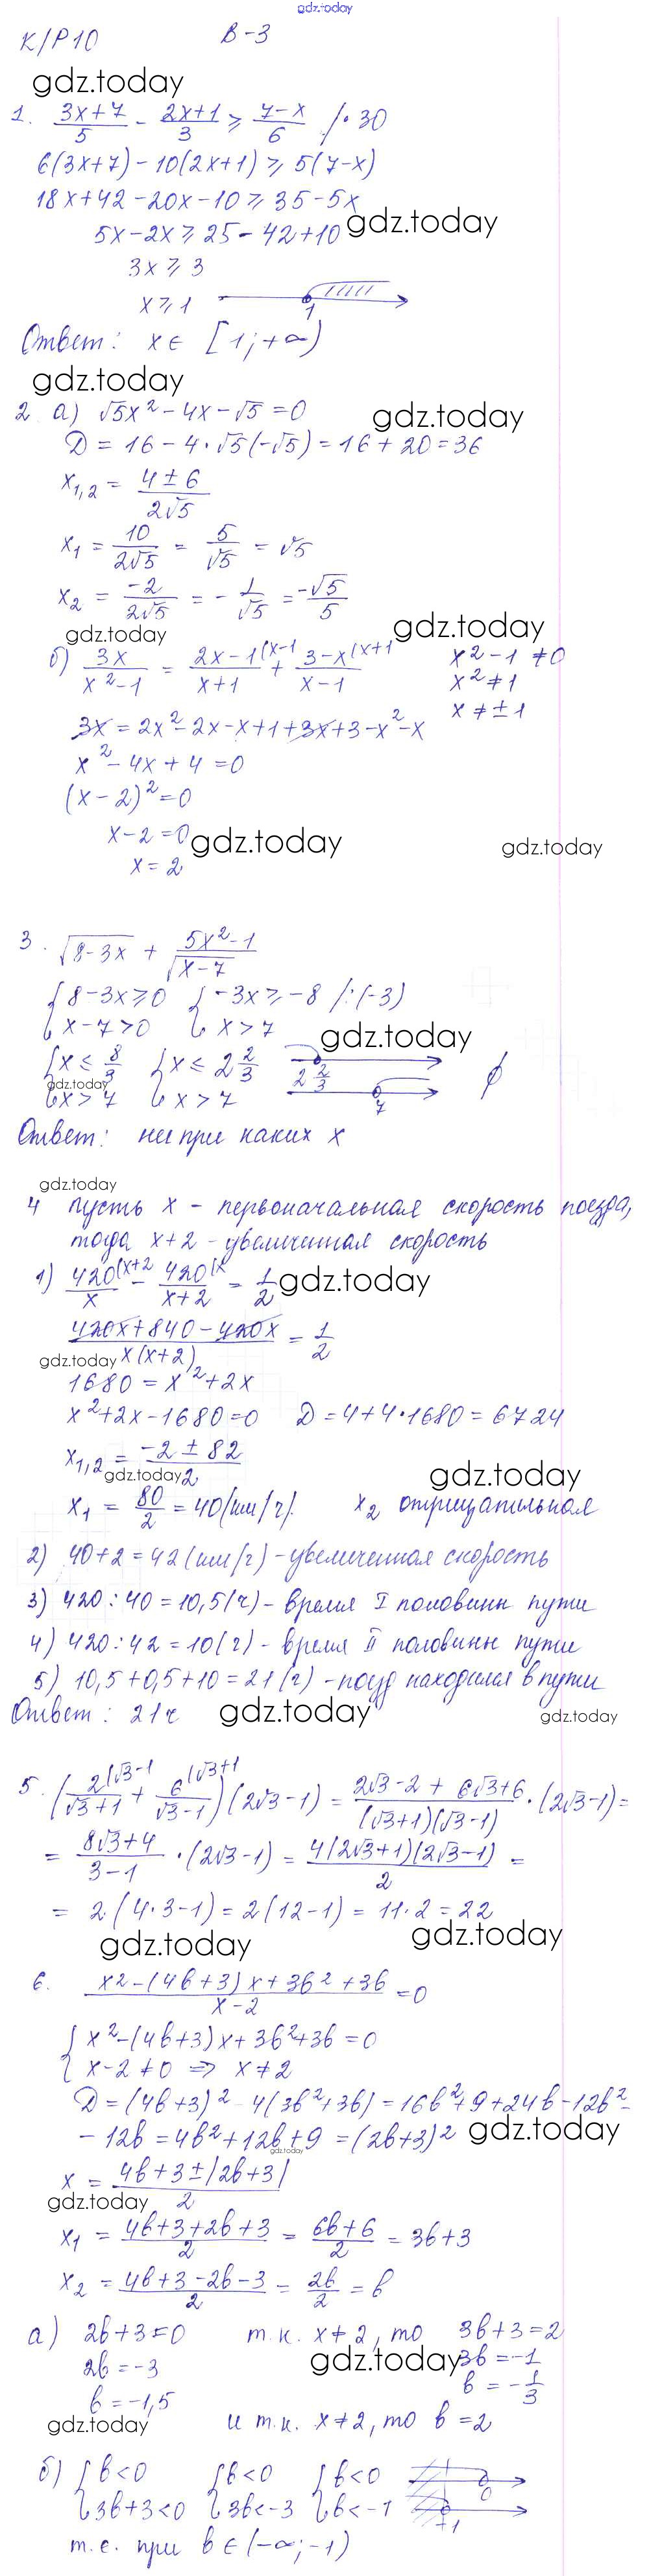 gdz.today
К/Р10 В-3
gdz.today
1. (3x+7)/5 - (2x+1)/3 ≥ (7-x)/6 /·30
6(3x+7)-10(2x+1) ≥ 5(7-x)
18x+42-20x-10 ≥ 35-5x
gdz.today
5x-2x ≥ 25-42+10
3x ≥ 3
x ≥ 1
1
Ответ: x ∈ [1; +∞)
gdz.today
2 а) √5x²-4x-√5=0
gdz.today
Д = 16-4·√5(-√5)=16+20=36
x₁,₂ = (4±6)/(2√5)
x₁ = 10/(2√5) = 5/√5 = √5
x₂ = -2/(2√5) = -1/√5 = -√5/5
gdz.today
gdz.today
б) 3x/(x²-1) = (2x-1)/(x+1) (x-1 + (3-x)/(x-1) (x+1 x²-1≠0
x²≠1
x≠±1
3x = 2x²-2x-x+1+3x+3-x²-x
x²-4x+4=0
(x-2)²=0
x-2=0
gdz.today
gdz.today
x=2
3. √(8-3x) + (5x²-1)/√(x-7)
{8-3x≥0 {-3x≥-8 /:(-3)
x-7>0 x>7
gdz.today
{x ≤ 8/3 {x ≤ 2 2/3 2 2/3
gdz.today
x>7 x>7 7 ∅
Ответ: ни при каких x
gdz.today
4 пусть x - первоначальная скорость поезда,
тогда x+2 - увеличенная скорость
1) 420/x (x+2 - 420/(x+2) (x = 1/2
gdz.today
(420x+840-420x)/(x(x+2)) = 1/2
gdz.today
1680=x²+2x
x²+2x-1680=0 Д=4+4·1680=6724
x₁,₂ = (-2±82)/2
gdz.today
gdz.today
x₁ = 80/2 = 40(км/ч). x₂ отрицательная
2) 40+2=42(км/ч)-увеличенная скорость
3) 420:40=10,5(ч)- время I половины пути
4) 420:42=10(ч)- время II половины пути
5) 10,5+0,5+10=21(ч)-поезд находился в пути
Ответ: 21ч
gdz.today
gdz.today
5. (2/(√3+1) (√3-1 + 6/(√3-1) (√3+1)(2√3-1) = (2√3-2+6√3+6)/((√3+1)(√3-1))·(2√3-1)=
= (8√3+4)/(3-1)·(2√3-1) = 4(2√3+1)(2√3-1)/2 =
= 2(4·3-1)=2(12-1)=11·2=22
gdz.today
gdz.today
6. (x²-(4b+3)x+3b²+3b)/(x-2) =0
{x²-(4b+3)x+3b²+3b=0
x-2≠0 ⇒ x≠2
Д=(4b+3)²-4(3b²+3b)=16b²+9+24b-12b²-
-12b=4b²+12b+9=(2b+3)²
gdz.today
gdz.today
x = (4b+3±|2b+3|)/2
gdz.today
x₁ = (4b+3+2b+3)/2 = (6b+6)/2 = 3b+3
x₂ = (4b+3-2b-3)/2 = 2b/2 = b
а) 2b+3=0 т.к. x≠2, то 3b+3=2
2b=-3 3b=-1
gdz.today
b=-1,5 b=-1/3
gdz.today
и т.к. x≠2, то b=2
б) {b<0 {b<0 {b<0 0
3b+3<0 3b<-3 b<-1 -1
т.е. при b∈(-∞;-1)